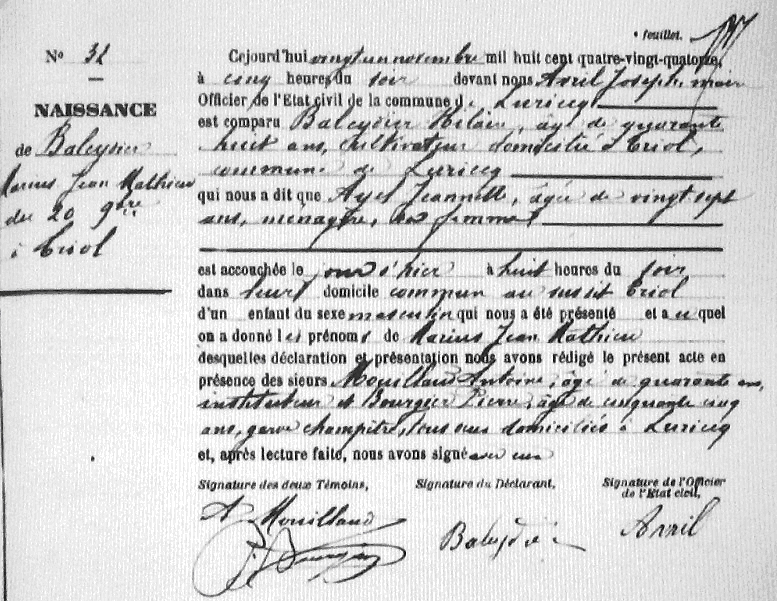 feuillet.
N° 32
NAISSANCE
de Baleydier
Marius Jean Mathieu
du 20 9bre
à Criol
Cejourd'hui vingt un novembre mil huit cent quatre-vingt-quatorze,
à cinq heures du soir devant nous Avril Joseph, maire
Officier de l'Etat civil de la commune de Luriecq
est comparu Baleydier Hilaire, âgé de quarante
huit ans, cultivateur domicilié à Criol,
commune de Luriecq
qui nous a dit que Ayel Jeannette, âgée de vingt sept
ans, ménagère, sa femme
est accouchée le jour d'hier à huit heures du soir
dans leur domicile commun au susdit Criol
d'un enfant du sexe masculin qui nous a été présenté et auquel
on a donné les prénoms de Marius Jean Mathieu
desquelles déclaration et présentation nous avons rédigé le présent acte en
présence des sieurs Mouillaud Antoine, âgé de quarante ans,
instituteur et Bourgier Pierre, âgé de cinquante cinq
ans, garde champêtre, tous deux domiciliés à Luriecq
et, après lecture faite, nous avons signé avec eux
Signature des deux Témoins, Signature du Déclarant, Signature de l'Officier
de l'Etat civil,
A Mouillaud
Baleydier
Avril